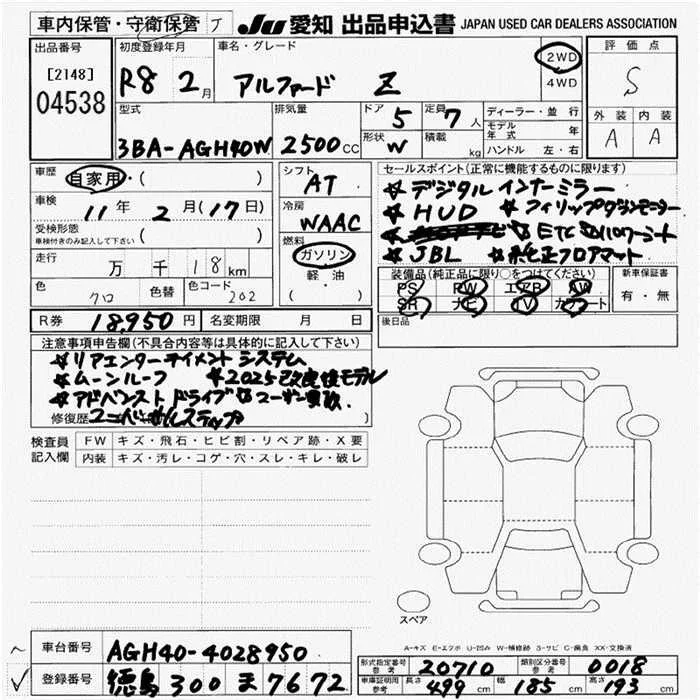 車内保管・守衛保管 J
JU 愛知 出品申込書 JAPAN USED CAR DEALERS ASSOCIATION
出品番号 [2148] 04538
初度登録年月 R8 2月
車名・グレード アルファード Z
2WD 4WD
評価点 S
外装 A 内装 A
型式 3BA-AGH40W
排気量 2500cc
ドア 5 定員 7人
形状 W 積載 kg
ディーラー・並行
モデル年式 年
ハンドル 左・右
車歴 自家用・( )
車検 11年 2月(17日)
受検形態 車検付きのみ記入して下さい ( )
走行 万 千 18km
色 クロ 色替 色コード 202
シフト AT
冷房 WAAC
燃料 ガソリン 軽油 ( )
セールスポイント(正常に機能するものに限ります)
☆デジタルインナーミラー
☆HUD ☆フィリップダウンモニター
ETC
☆JBL ☆純正フロアマット
装備品(純正品に限り○をつけてください)
PS PW エアB AW
SR ナビ TV カワシート
新車保証書 有・無
後日品
R券 18,950円 名変期限 月 日
注意事項申告欄(不具合内容等は具体的に記入して下さい)
☆リアエンターテイメントシステム
☆ムーンルーフ ☆2025改良後モデル
☆アドバンストドライブ ☆ユーザー買取
修復歴 ユニバーサルステップ
検査員記入欄
FW キズ・飛石・ヒビ割・リペア跡・X要
内装 キズ・汚レ・コゲ・穴・スレ・キレ・破レ
スペア
A-キズ E-エクボ U-凹み W-補修跡 S-サビ C-腐食 XX-交換済
車台番号 AGH40-4028950
登録番号 徳島 300 ま 7672
形式指定番号 参考 20710 類別区分番号 参考 0018
車庫証明用 参考 長さ 499cm 幅 185cm 高さ 193cm